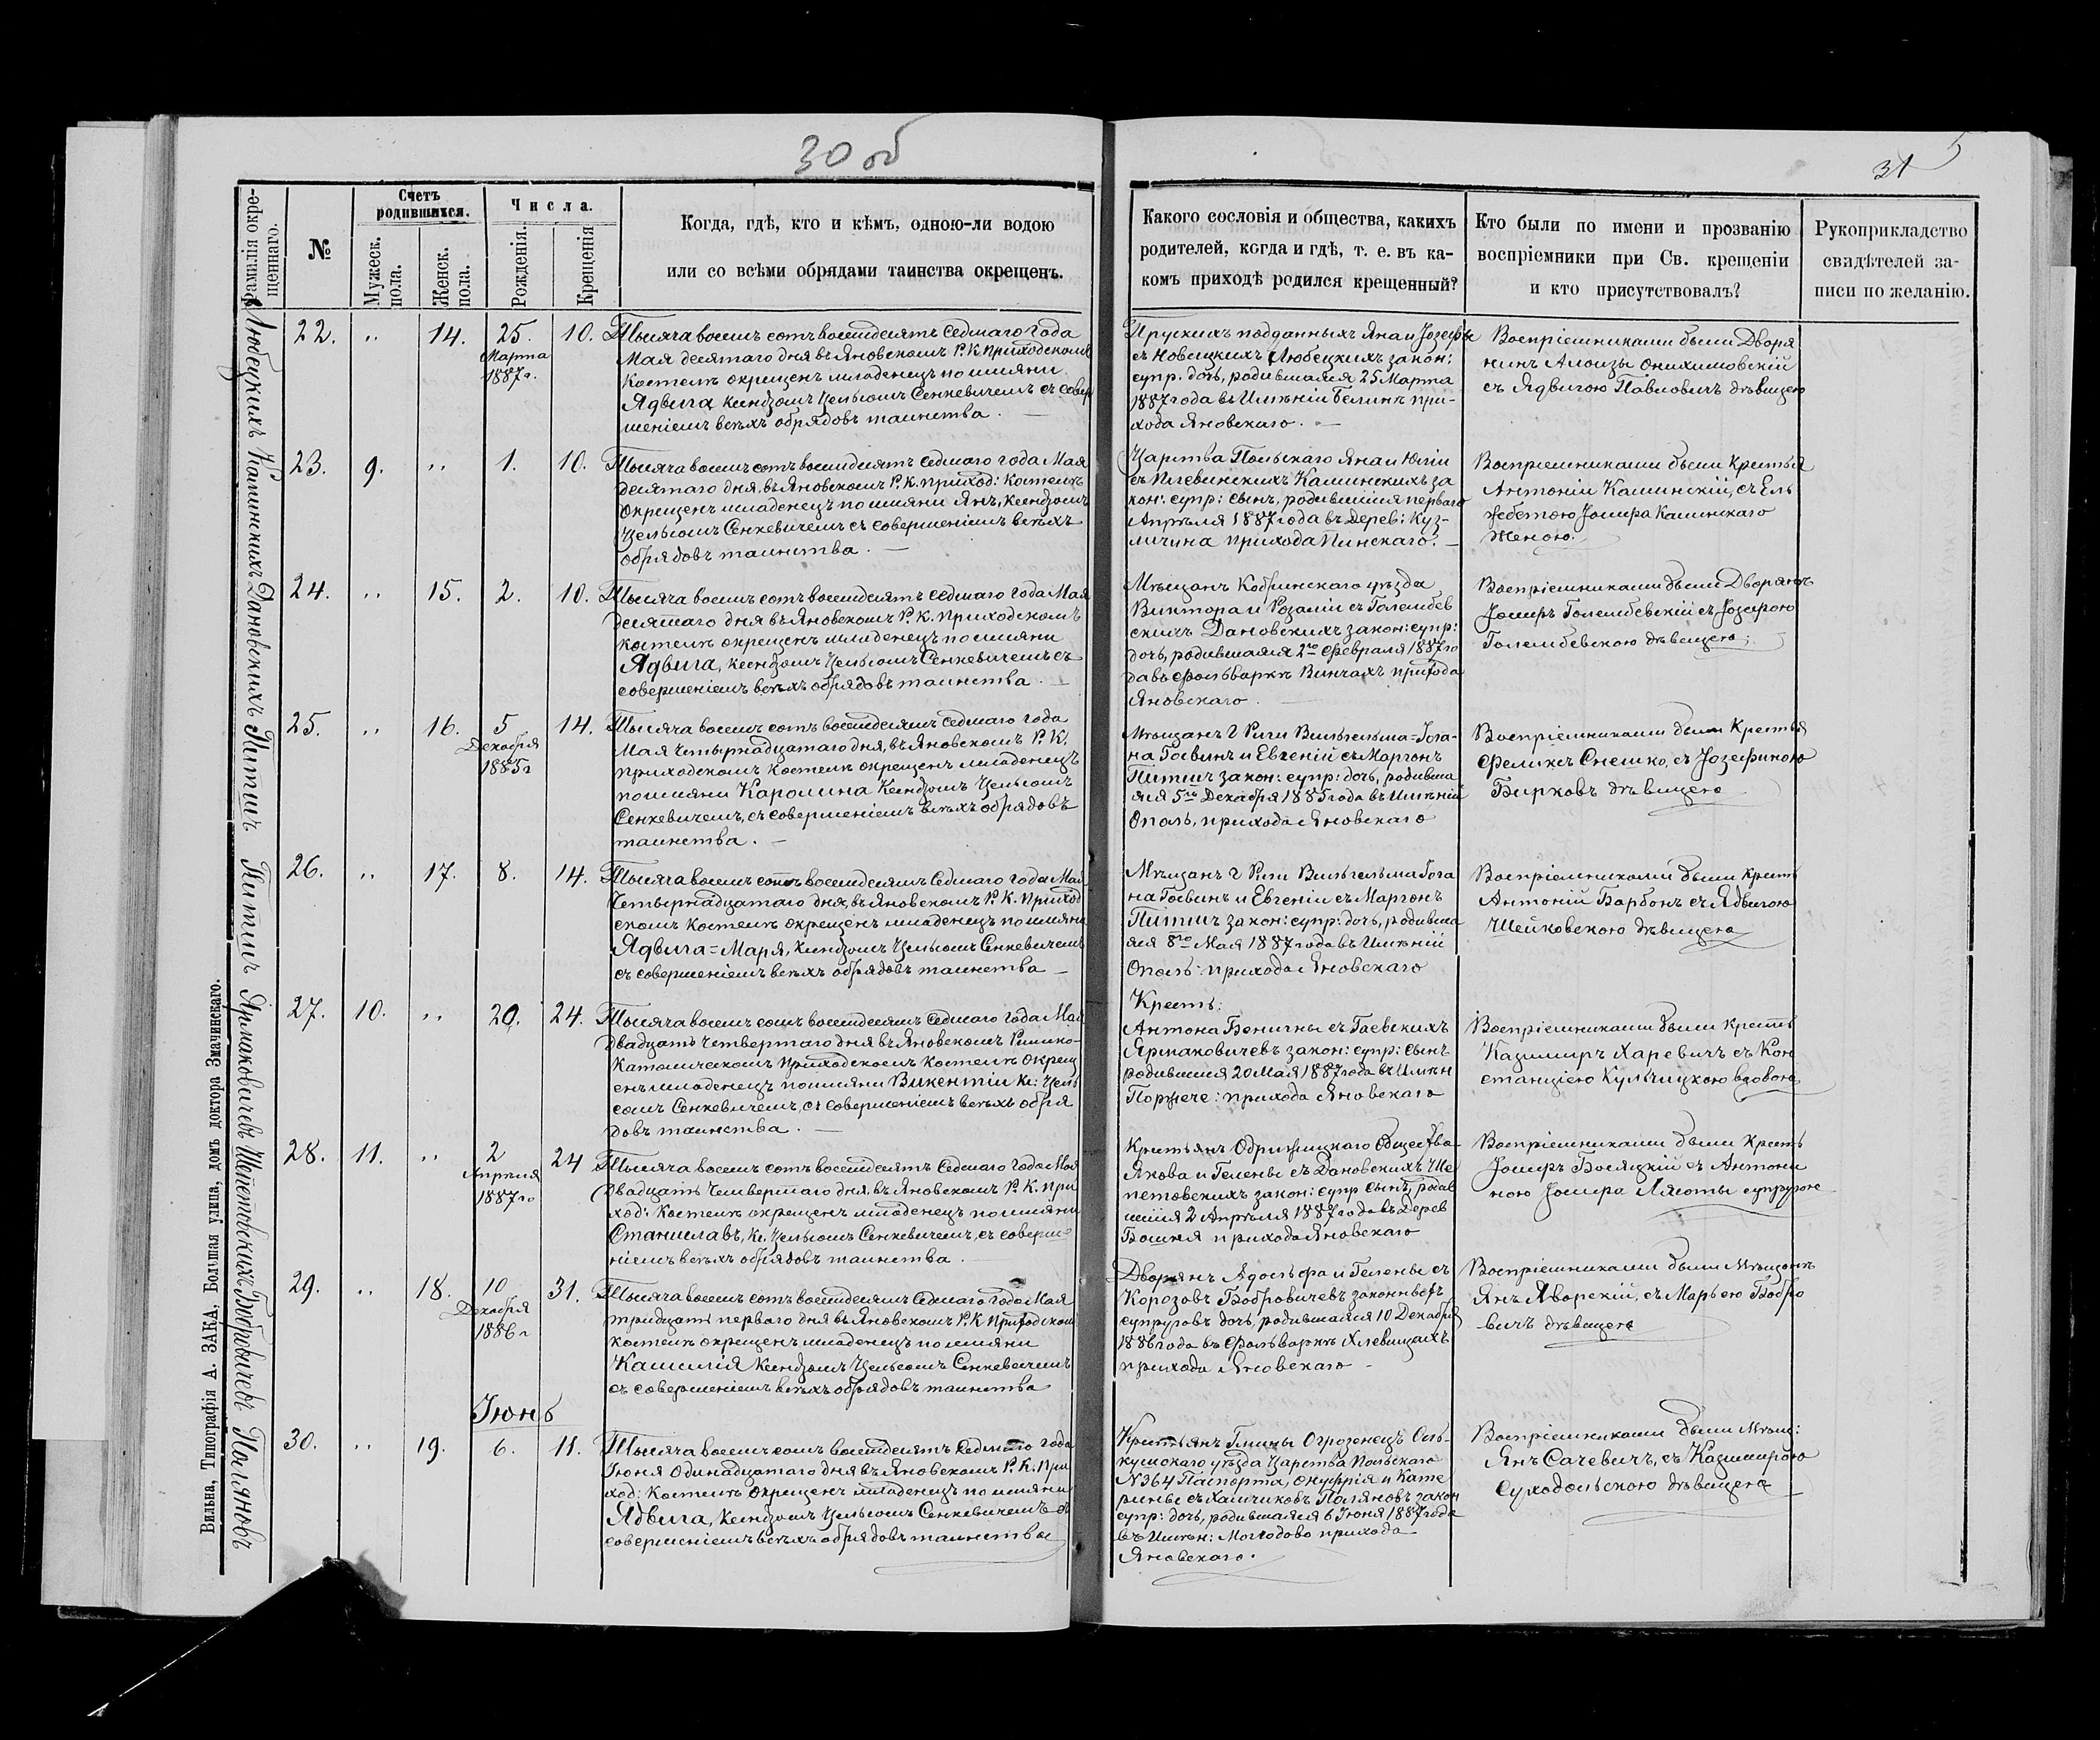 30 об
31
Фамилія окре-
щеннаго.
№
Счетъ
родившихся.
Мужеск.
пола.
Женск.
пола.
Числа.
Рожденія.
Крещенія
Когда, гдѣ, кто и кѣмъ, одною-ли водою
или со всѣми обрядами таинства окрещенъ.
Какого сословія и общества, какихъ
родителей, когда и гдѣ, т. е. въ ка-
комъ приходѣ родился крещенный?
Кто были по имени и прозванію
воспріемники при Св. крещеніи
и кто присутствовалъ?
Рукоприкладство
свидѣтелей за-
писи по желанію.
Любецкихъ
22. " 14. 25. Марта 1887 г. 10.
Тысяча восемь сотъ восемдесятъ седмаго года
Мая десятаго дня въ Яновскомъ Р. К. Приходскомъ
Костелѣ окрещенъ младенецъ по имяни
Ядвига, Ксендзомъ Цельсомъ Сенкевичемъ съ совер
шеніемъ всѣхъ обрядовъ таинства. —
Прускихъ подданныхъ Яна и Јозефы
съ Новицкихъ Любецкихъ закон:
супр. дочь, родившаяся 25 Марта
1887 года въ Имѣніи Белинѣ при-
хода Яновскаго. —
Воспріемниками были Дворя
нинъ Алоизы Онихимовскій
съ Ядвигою Павловичъ дѣвицею
Каминскихъ
23. 9. " 1. 10.
Тысяча восемь сотъ восемдесятъ седмаго года Мая
десятаго дня, въ Яновскомъ Р. К. приход: Костелѣ
окрещенъ младенецъ по имяни Янъ, Ксендзомъ
Цельсомъ Сенкевичемъ съ совершеніемъ всѣхъ
обрядовъ таинства. —
Царства Польскаго Яна и Юліи
съ Плевинскихъ Каминскихъ за
кон: супр: сынъ, родившійся перваго
Апрѣля 1887 года въ Дерев: Куз-
личина прихода Пинскаго. —
Воспріемниками были Крестья
Антоній Каминскій, съ Ель
жбетою Јосифа Каминскаго
женою.
Дановскихъ
24. " 15. 2. 10.
Тысяча восемь сотъ восемдесятъ седмаго года Мая
десятаго дня въ Яновскомъ Р. К. Приходскомъ
костелѣ окрещенъ младенецъ по имяни
Ядвига, ксендзомъ Цельсомъ Сенкевичемъ съ
совершеніемъ всѣхъ обрядовъ таинства. —
Мѣщанъ Кобринскаго уѣзда
Виктора и Розаліи съ Голембев
скихъ Дановскихъ закон: супр:
дочь, родившаяся 2го Февраля 1887 го
да въ Фольваркѣ Винчахъ прихода
Яновскаго.
Воспріемниками были Дворянъ
Јосифъ Голембевскій съ Јозефою
Голембевскою дѣвицею;
Питшъ
25. " 16. 5 Декабря 1885 г 14.
Тысяча восемь сотъ восемдесятъ седмаго года
Мая четырнадцатаго дня, въ Яновскомъ Р. К.
приходскомъ костелѣ окрещенъ младенецъ
по имяни Каролина Ксендзомъ Цельсомъ
Сенкевичемъ, съ совершеніемъ всѣхъ обрядовъ
таинства. —
Мѣщанъ г Риги Вильгельма=Гога-
на Госвинъ и Евгеній съ Маргонъ
Питшъ закон: супр: дочь, родивша
яся 5го Декабря 1885 года въ Имѣній
Ополь, прихода Яновскаго
Воспріемниками были Крестья
Феликсъ Снешко, съ Јозефиною
Бирковъ дѣвицею
Питшъ
26. " 17. 8. 14.
Тысяча восемь сотъ восемдесятъ седмаго года Мая
Четырнадцатаго дня, въ Яновскомъ Р. К. Приход
скомъ костелѣ окрещенъ младенецъ по имяни
Ядвига=Марія, Ксендзомъ Цельсомъ Сенкевичемъ
съ совершеніемъ всѣхъ обрядовъ таинства —
Мѣщанъ г Риги Вильгельма Гога
на Госвинъ и Евгеніи съ Маргонъ
Питшъ закон: супр: дочь, родивша
яся 8го Мая 1887 года въ Имѣній
Ополь: прихода Яновскаго
Воспріемниками были крестъ
Антоній Барбонъ съ Ядвигою
Шейковскою дѣвицею
Ярмаковичевъ
27. 10. " 20. 24.
Тысяча восемь сотъ восемдесятъ седмаго года Мая
двадцать четвертаго дня въ Яновскомъ Римско-
Католическомъ Приходскомъ Костелѣ окрещ
енъ младенецъ по имяни Викентій Кс: Цель
сомъ Сенкевичемъ, съ совершеніемъ всѣхъ обря
довъ таинства. —
Крестъ:
Антона Бенигны съ Гаевскихъ
Ярмаковичевъ закон: супр: сынъ
родившійся 20 Мая 1887 года въ Имѣн
Поржече: прихода Яновскаго
Воспріемниками были крестъ
Казимиръ Харевичъ съ Кон
станціею Кульчицкою вдовою
Шепетовскихъ
28. 11. " 2 Апрѣля 1887 го 24
Тысяча восемь сотъ восемдесятъ седмаго года Мая
Двадцать Четвертаго дня, въ Яновскомъ Р. К. При
ход: Костелѣ окрещенъ младенецъ по имяни
Станиславъ, Кс. Цельсомъ Сенкевичемъ, съ соверше
ніемъ всѣхъ обрядовъ таинства.
Крестьянъ Одрижицкаго Общества
Якова и Гелены съ Дановскихъ Ше
петовскихъ закон: супр сынъ, родив
шійся 2 Апрѣля 1887 года въ Дерев
Башня прихода Яновскаго
Воспріемниками были Крестъ
Јосифъ Босяцкій съ Антони
ною Јосифа Лясоты супругою
Бобровичевъ
29. " 18. 10 Декабря 1886 г 31.
Тысяча восемь сотъ восемдесятъ седмаго года Мая
тридцать перваго дня въ Яновскомъ Р. К Приходском
костелѣ окрещенъ младенецъ по имяни
Камилія Ксендзомъ Цельсомъ Сенкевичемъ
съ совершеніемъ всѣхъ обрядовъ таинства
Дворянъ Адольфа и Гелены съ
Корозовъ Бобровичевъ законныхъ
супруговъ дочь, родившаяся 10 Декабря
1886 года въ Фольваркѣ Хлевищахъ
прихода Яновскаго —
Воспріемниками были Мѣщанъ
Янъ Яворскій, съ Марьею Бобро
вичъ дѣвицею
Іюнь
Поляновъ
30. " 19. 6. 11.
Тысяча восемь сотъ восемдесятъ седмаго года
Іюня Одинадцатаго дня въ Яновскомъ Р. К. При
ход: Костелѣ окрещенъ младенецъ по имяни
Ядвига, Ксендзомъ Цельсомъ Сенкевичемъ съ
совершеніемъ всѣхъ обрядовъ таинства
Крестьянъ Гмины Огрозенецъ Оль-
кушскаго уѣзда Царства Польскаго
N 364 Паспорта, Онуфрія и Кате
рины съ Хамчиковъ Поляновъ закон
супр: дочь, родившаяся 6 Іюня 1887 года
въ Имѣн: Молодово прихода
Яновскаго.
Воспріемниками были Мѣщ:
Янъ Сачевичъ, съ Казимирою
Суходольскою дѣвицею
Вильна, Типографія А. ЗАКА, Большая улица, домъ доктора Змачинскаго.